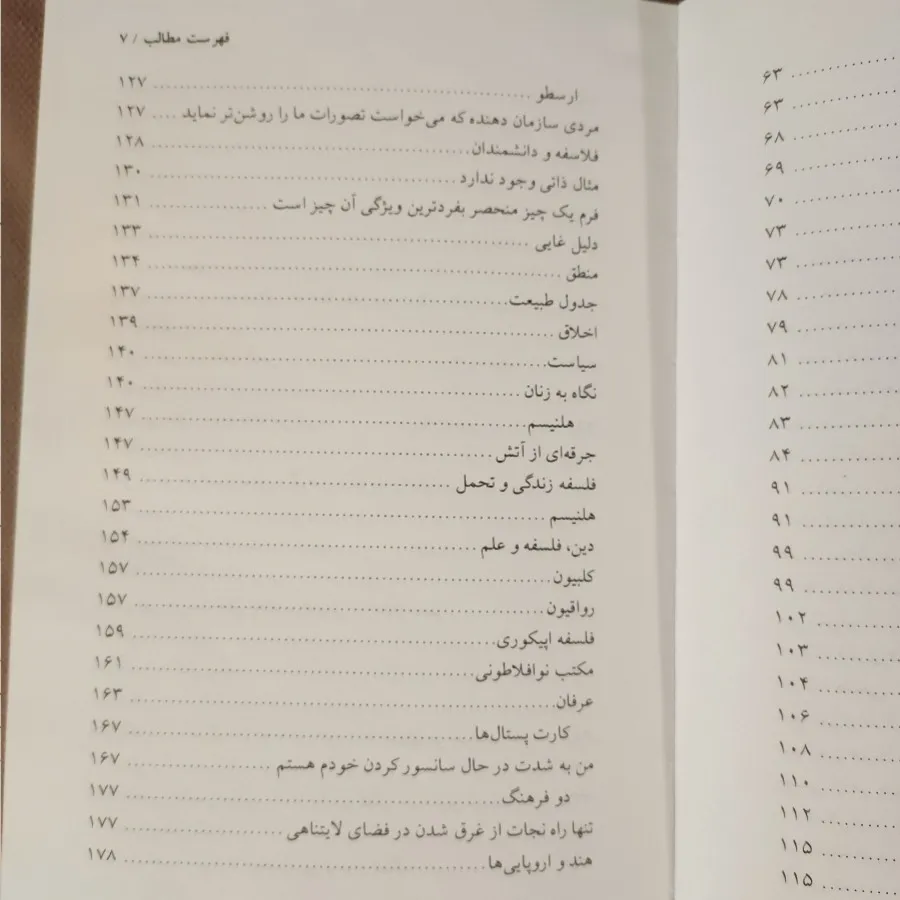 فهرست مطالب / ۷
ارسطو ۱۲۷
مردی سازمان دهنده که می‌خواست تصورات ما را روشن‌تر نماید ۱۲۷
فلاسفه و دانشمندان ۱۲۸
مثال ذاتی وجود ندارد ۱۳۰
فرم یک چیز منحصر بفردترین ویژگی آن چیز است ۱۳۱
دلیل غایی ۱۳۳
منطق ۱۳۴
جدول طبیعت ۱۳۷
اخلاق ۱۳۹
سیاست ۱۴۰
نگاه به زنان ۱۴۰
هلنیسم ۱۴۷
جرقه‌ای از آتش ۱۴۷
فلسفه زندگی و تحمل ۱۴۹
هلنیسم ۱۵۳
دین، فلسفه و علم ۱۵۴
کلبیون ۱۵۷
رواقیون ۱۵۷
فلسفه اپیکوری ۱۵۹
مکتب نوافلاطونی ۱۶۱
عرفان ۱۶۳
کارت پستال‌ها ۱۶۷
من به شدت در حال سانسور کردن خودم هستم ۱۶۷
دو فرهنگ ۱۷۷
تنها راه نجات از غرق شدن در فضای لایتناهی ۱۷۷
هند و اروپایی‌ها ۱۷۸
۶۳
۶۳
۶۸
۶۹
۷۰
۷۳
۷۳
۷۸
۷۹
۸۱
۸۲
۸۳
۸۴
۹۱
۹۱
۹۹
۹۹
۱۰۲
۱۰۳
۱۰۴
۱۰۶
۱۰۸
۱۱۰
۱۱۲
۱۱۵
۱۱۵